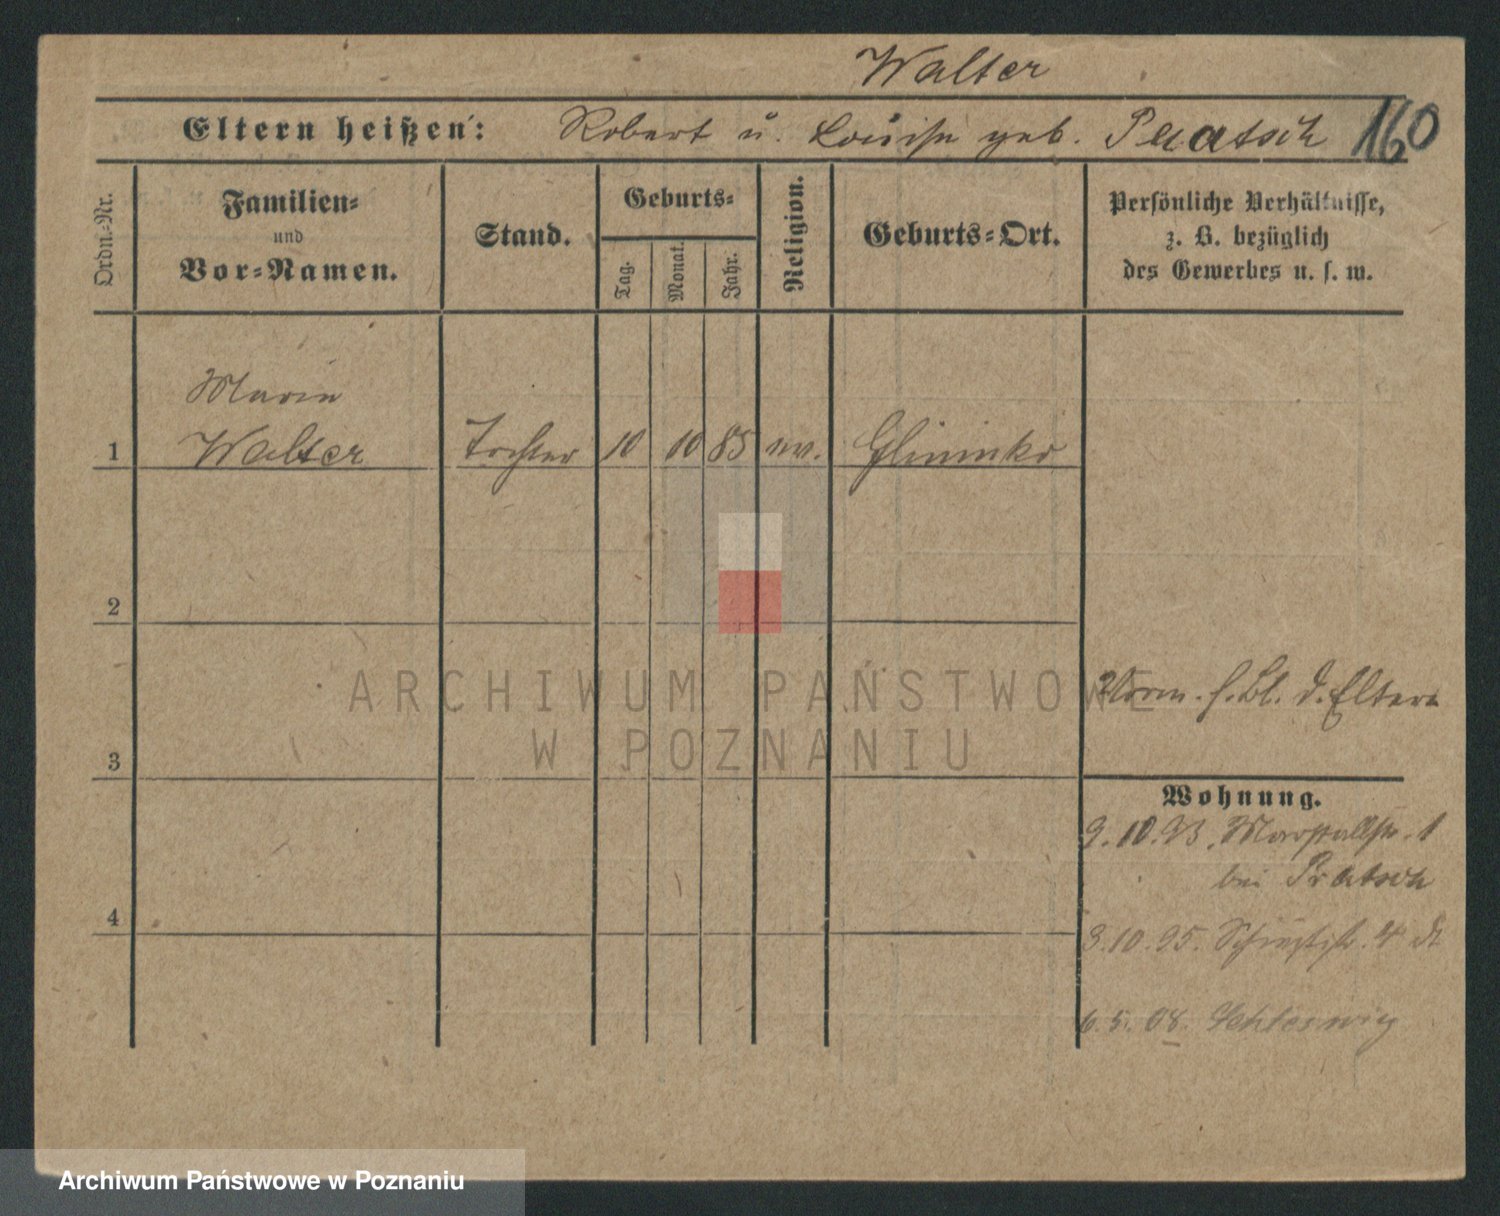 Walter
Eltern heißen: Robert u. Louise geb. Pratsch 160
Ordn.-Nr.
Familien-
und
Vor-Namen.
Stand.
Geburts-
Tag.
Monat.
Jahr.
Religion.
Geburts-Ort.
Persönliche Verhältnisse,
z. B. bezüglich
des Gewerbes u. s. w.
Maria
1 Walter Tochter 10 10 85 ev. Glininko
2
3
4
s. Bl. d. Eltern
Wohnung.
9.10.93. Marstallstr. 1
bei Pratsch
3.10.95.
6.5.08. Schleswig
ARCHIWUM PAŃSTWOWE
W POZNANIU
Archiwum Państwowe w Poznaniu